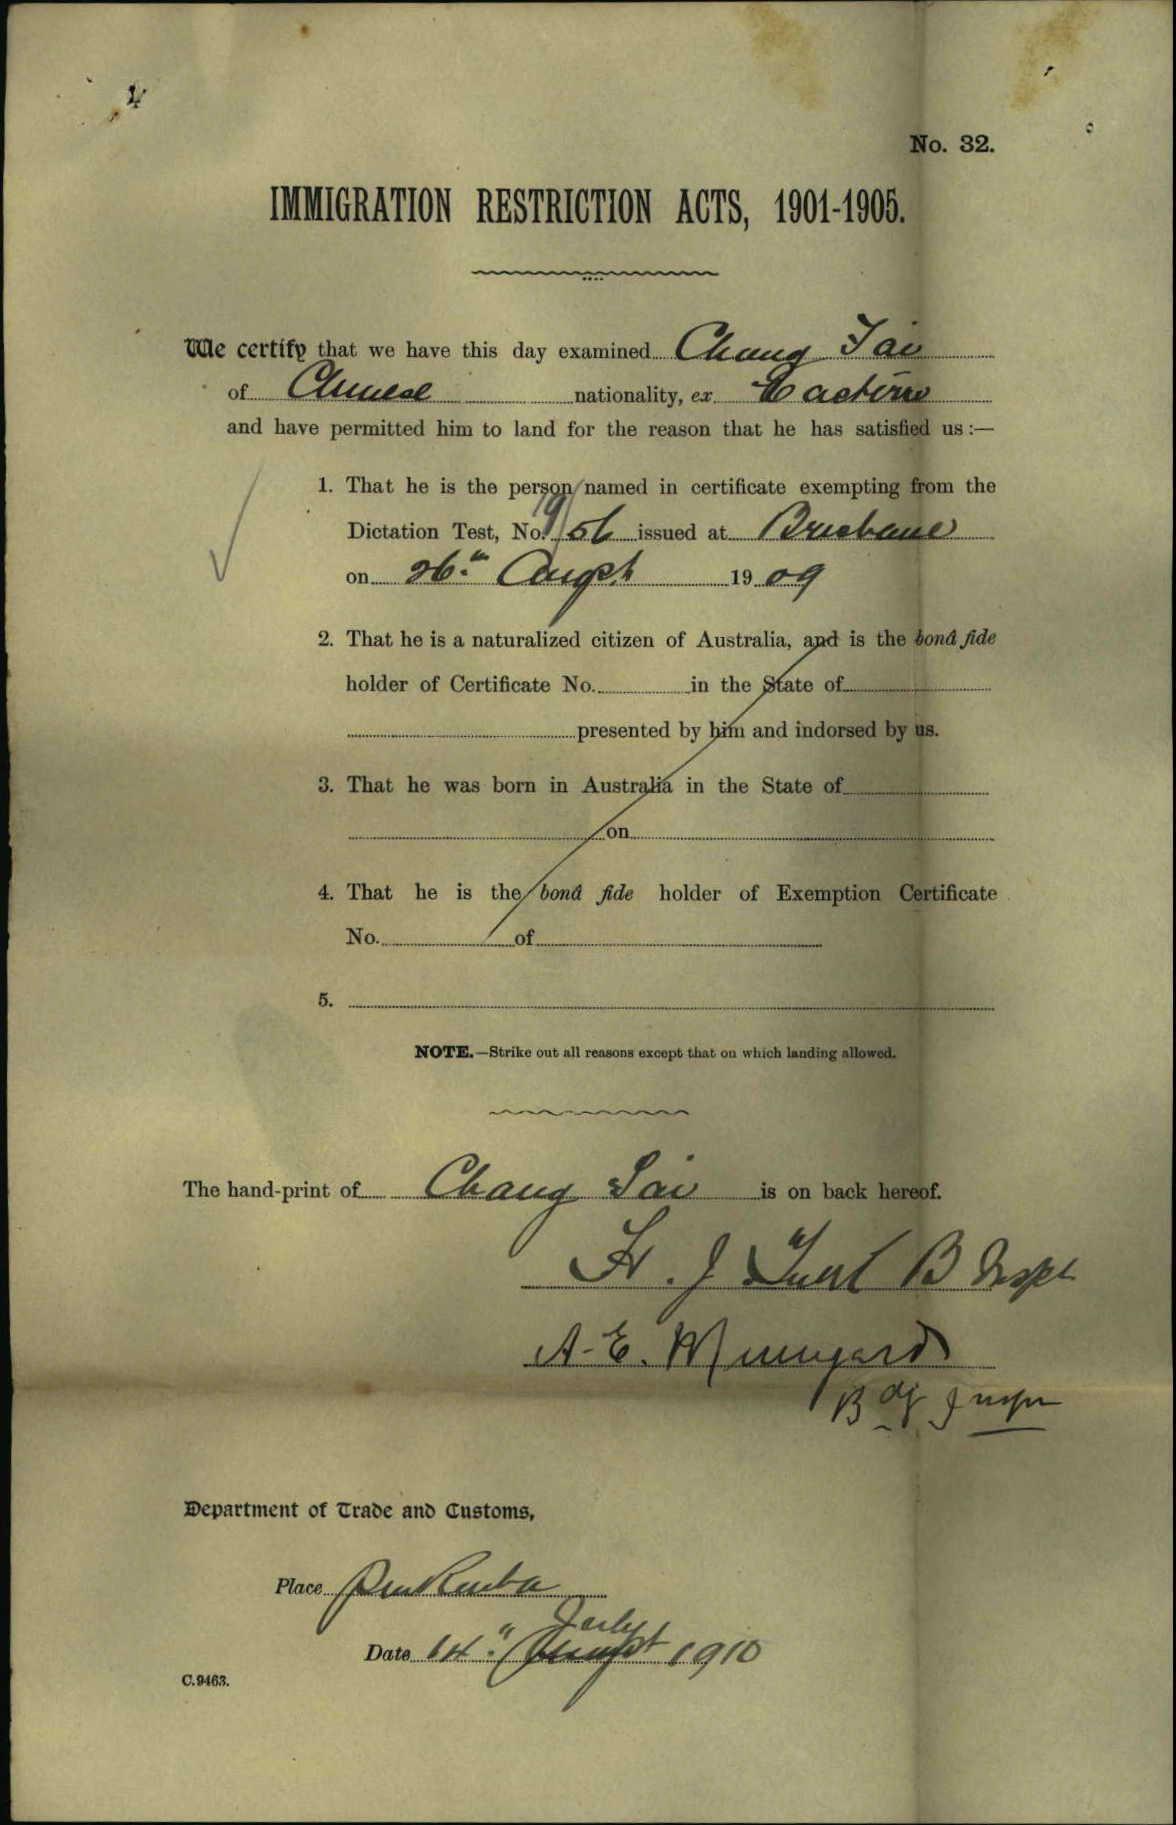 No. 32.
IMMIGRATION RESTRICTION ACTS, 1901-1905.
We certify that we have this day examined Chang Tai
of Chinese nationality, ex Eastern
and have permitted him to land for the reason that he has satisfied us :—
1. That he is the person named in certificate exempting from the
Dictation Test, No. 9/56 issued at Brisbane
on 26th August 1909
2. That he is a naturalized citizen of Australia, and is the bonâ fide
holder of Certificate No. in the State of
presented by him and indorsed by us.
3. That he was born in Australia in the State of
on
4. That he is the bonâ fide holder of Exemption Certificate
No. of
5.
NOTE.—Strike out all reasons except that on which landing allowed.
The hand-print of Chang Tai is on back hereof.
J B Inspt
A. E.
Bdg
Department of Trade and Customs,
Place Pinkenba
July
Date 14th August 1910
C.9463.